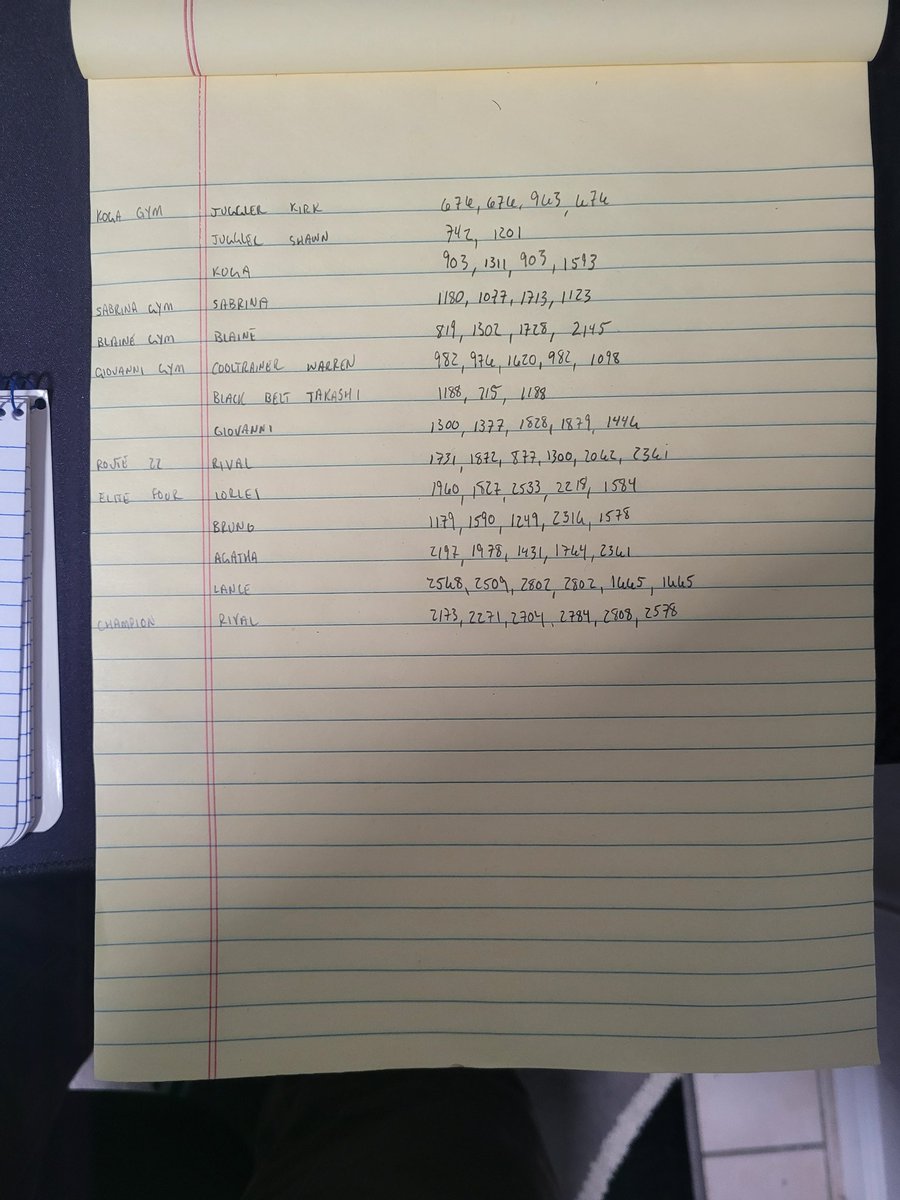 KOGA GYM JUGGLER KIRK 676, 676, 963, 676
JUGGLER SHAWN 742, 1201
KOGA 903, 1311, 903, 1593
SABRINA GYM SABRINA 1180, 1077, 1713, 1123
BLAINE GYM BLAINE 819, 1302, 1728, 2145
GIOVANNI GYM COOLTRAINER WARREN 982, 976, 1620, 982, 1098
BLACK BELT TAKASHI 1188, 715, 1188
GIOVANNI 1300, 1377, 1828, 1879, 1446
ROUTE 22 RIVAL 1731, 1872, 877, 1300, 2062, 2361
ELITE FOUR LORLEI 1960, 1827, 2533, 2218, 1584
BRUNO 1179, 1590, 1249, 2316, 1578
AGATHA 2197, 1978, 1431, 1764, 2361
LANCE 2568, 2509, 2802, 2802, 1665, 1665
CHAMPION RIVAL 2173, 2271, 2704, 2784, 2808, 2578